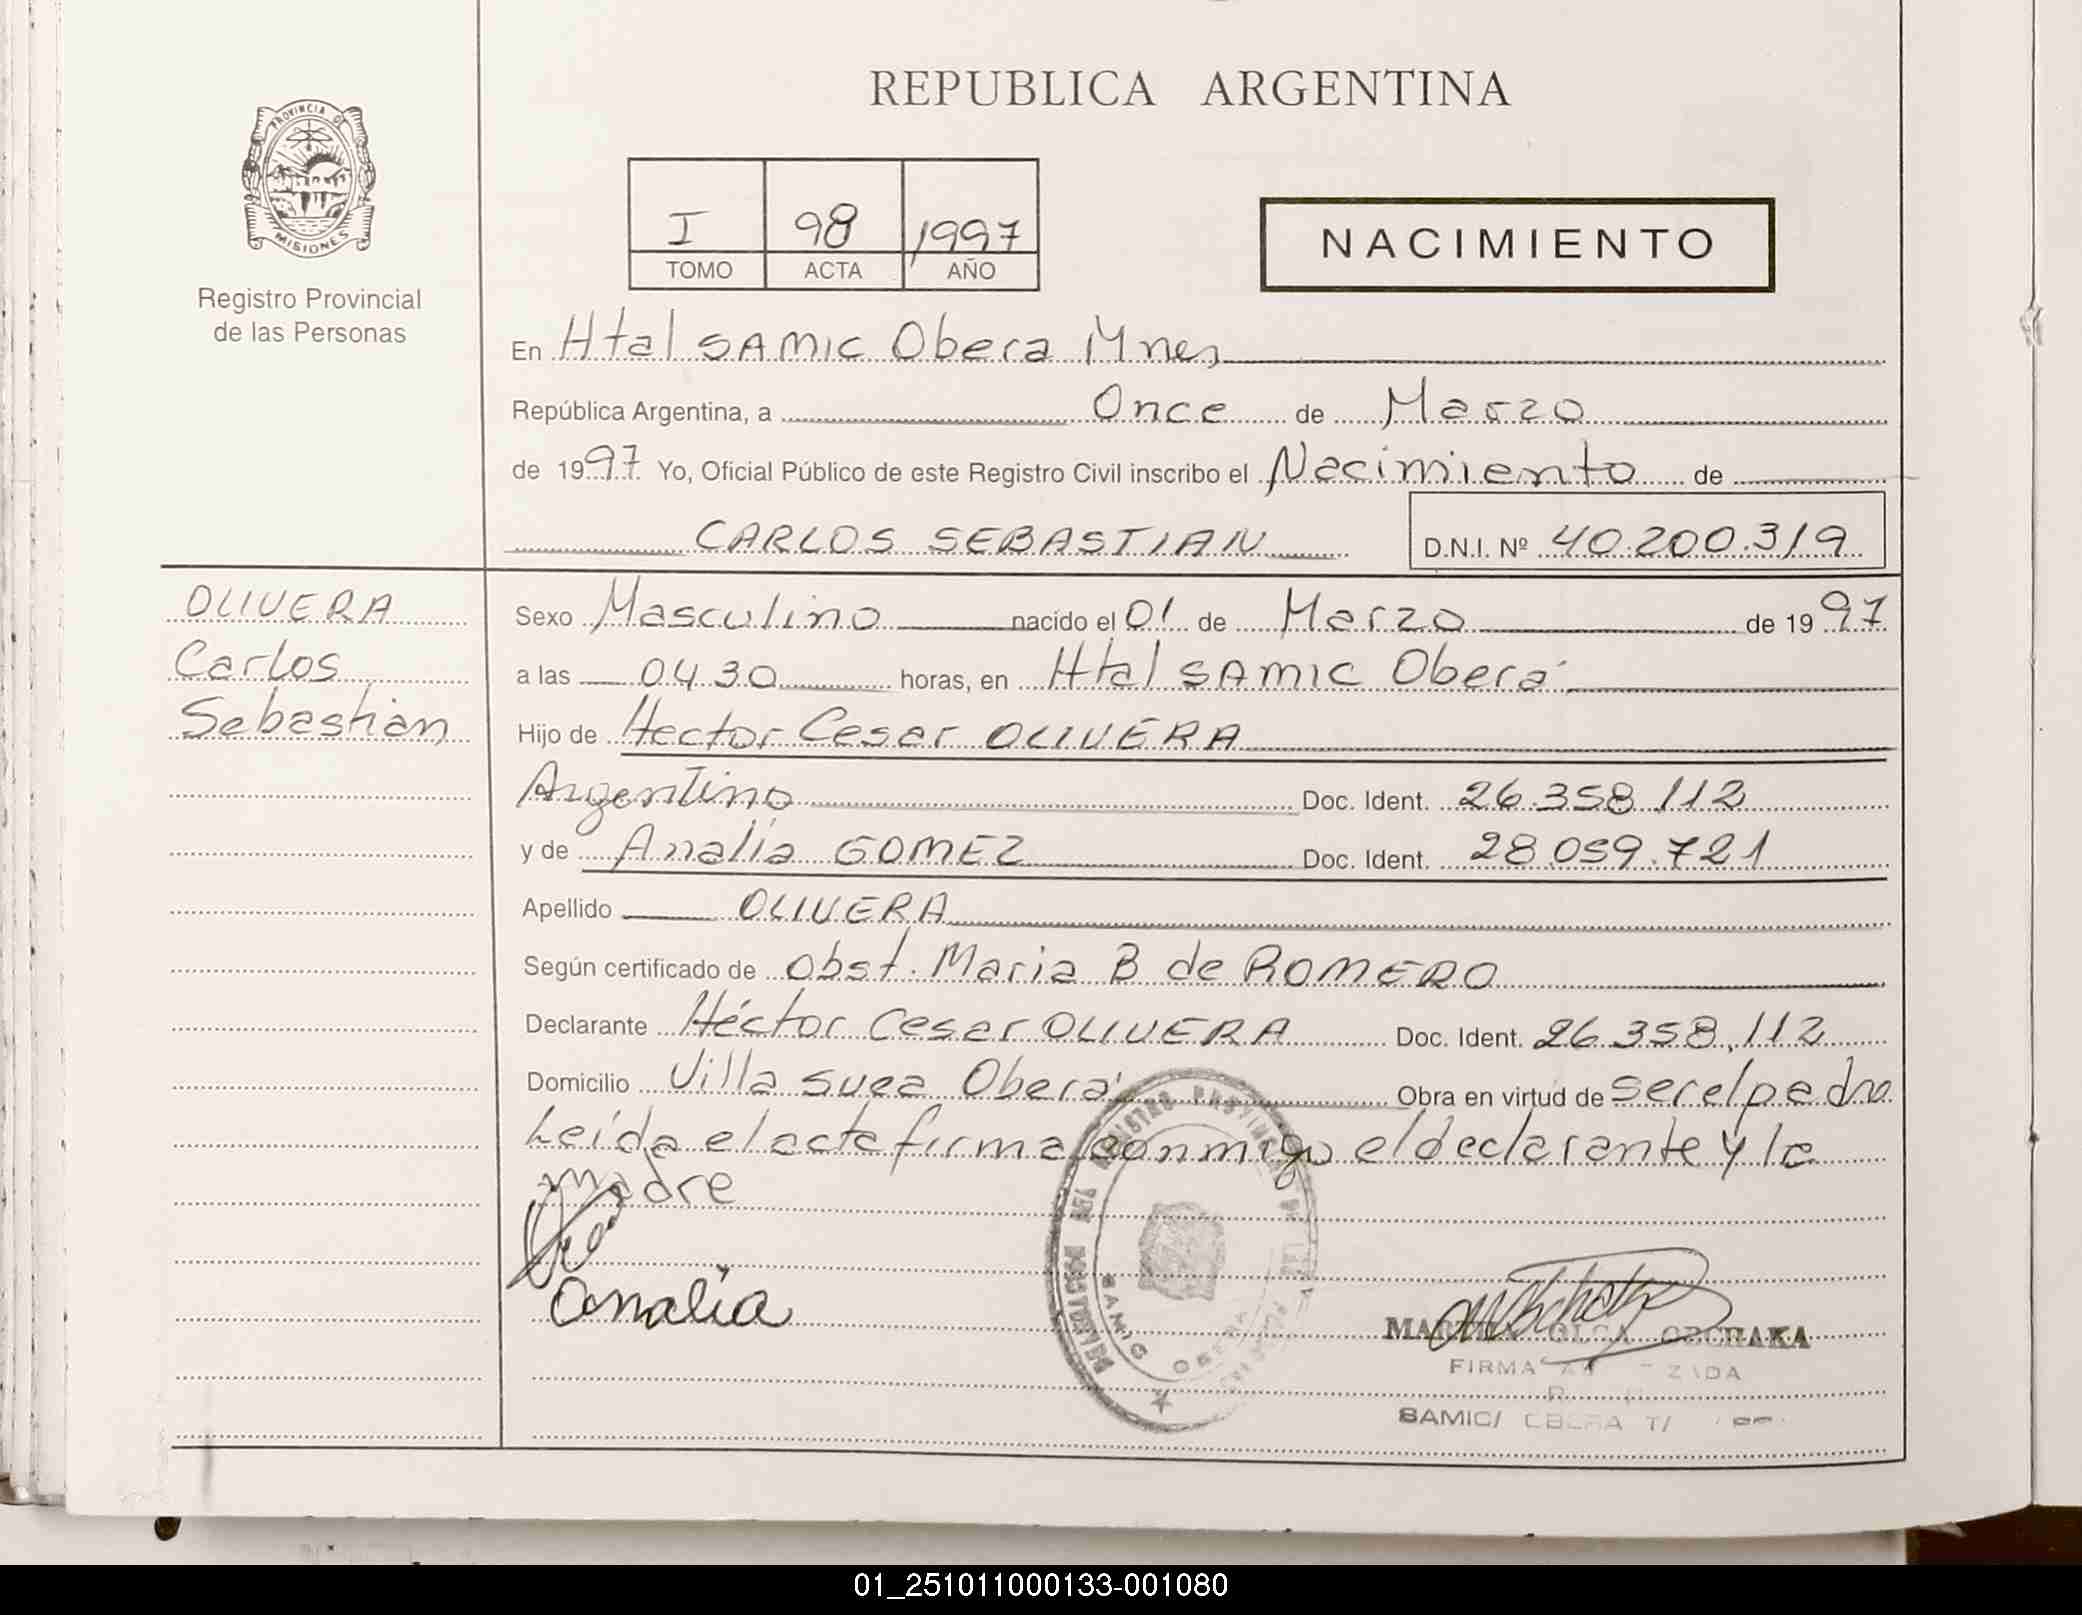 REPUBLICA ARGENTINA
PROVINCIA DE
MISIONES
Registro Provincial
de las Personas
I 98 1997
TOMO ACTA AÑO
NACIMIENTO
En Htal SAMIC Obera Mnes
República Argentina, a Once de Marzo
de 1997 Yo, Oficial Público de este Registro Civil inscribo el Nacimiento de
CARLOS SEBASTIAN D.N.I. Nº 40.200.319
OLIVERA
Carlos
Sebastian
Sexo Masculino nacido el 01 de Marzo de 1997
a las 04 30 horas, en Htal SAMIC Oberá
Hijo de Hector Cesar OLIVERA
Argentino Doc. Ident. 26.358.112
y de Analia GOMEZ Doc. Ident. 28.059.721
Apellido OLIVERA
Según certificado de Obst. Maria B de ROMERO
Declarante Héctor Cesar OLIVERA Doc. Ident. 26.358.112
Domicilio Villa suea Oberá Obra en virtud de ser el padre
Leída el acta firma conmigo el declarante y la
madre
Analia
REGISTRO PROVINCIAL DE LAS
SAMIC OBERA
OLGA
FIRMA
SAMIC/
01_251011000133-001080